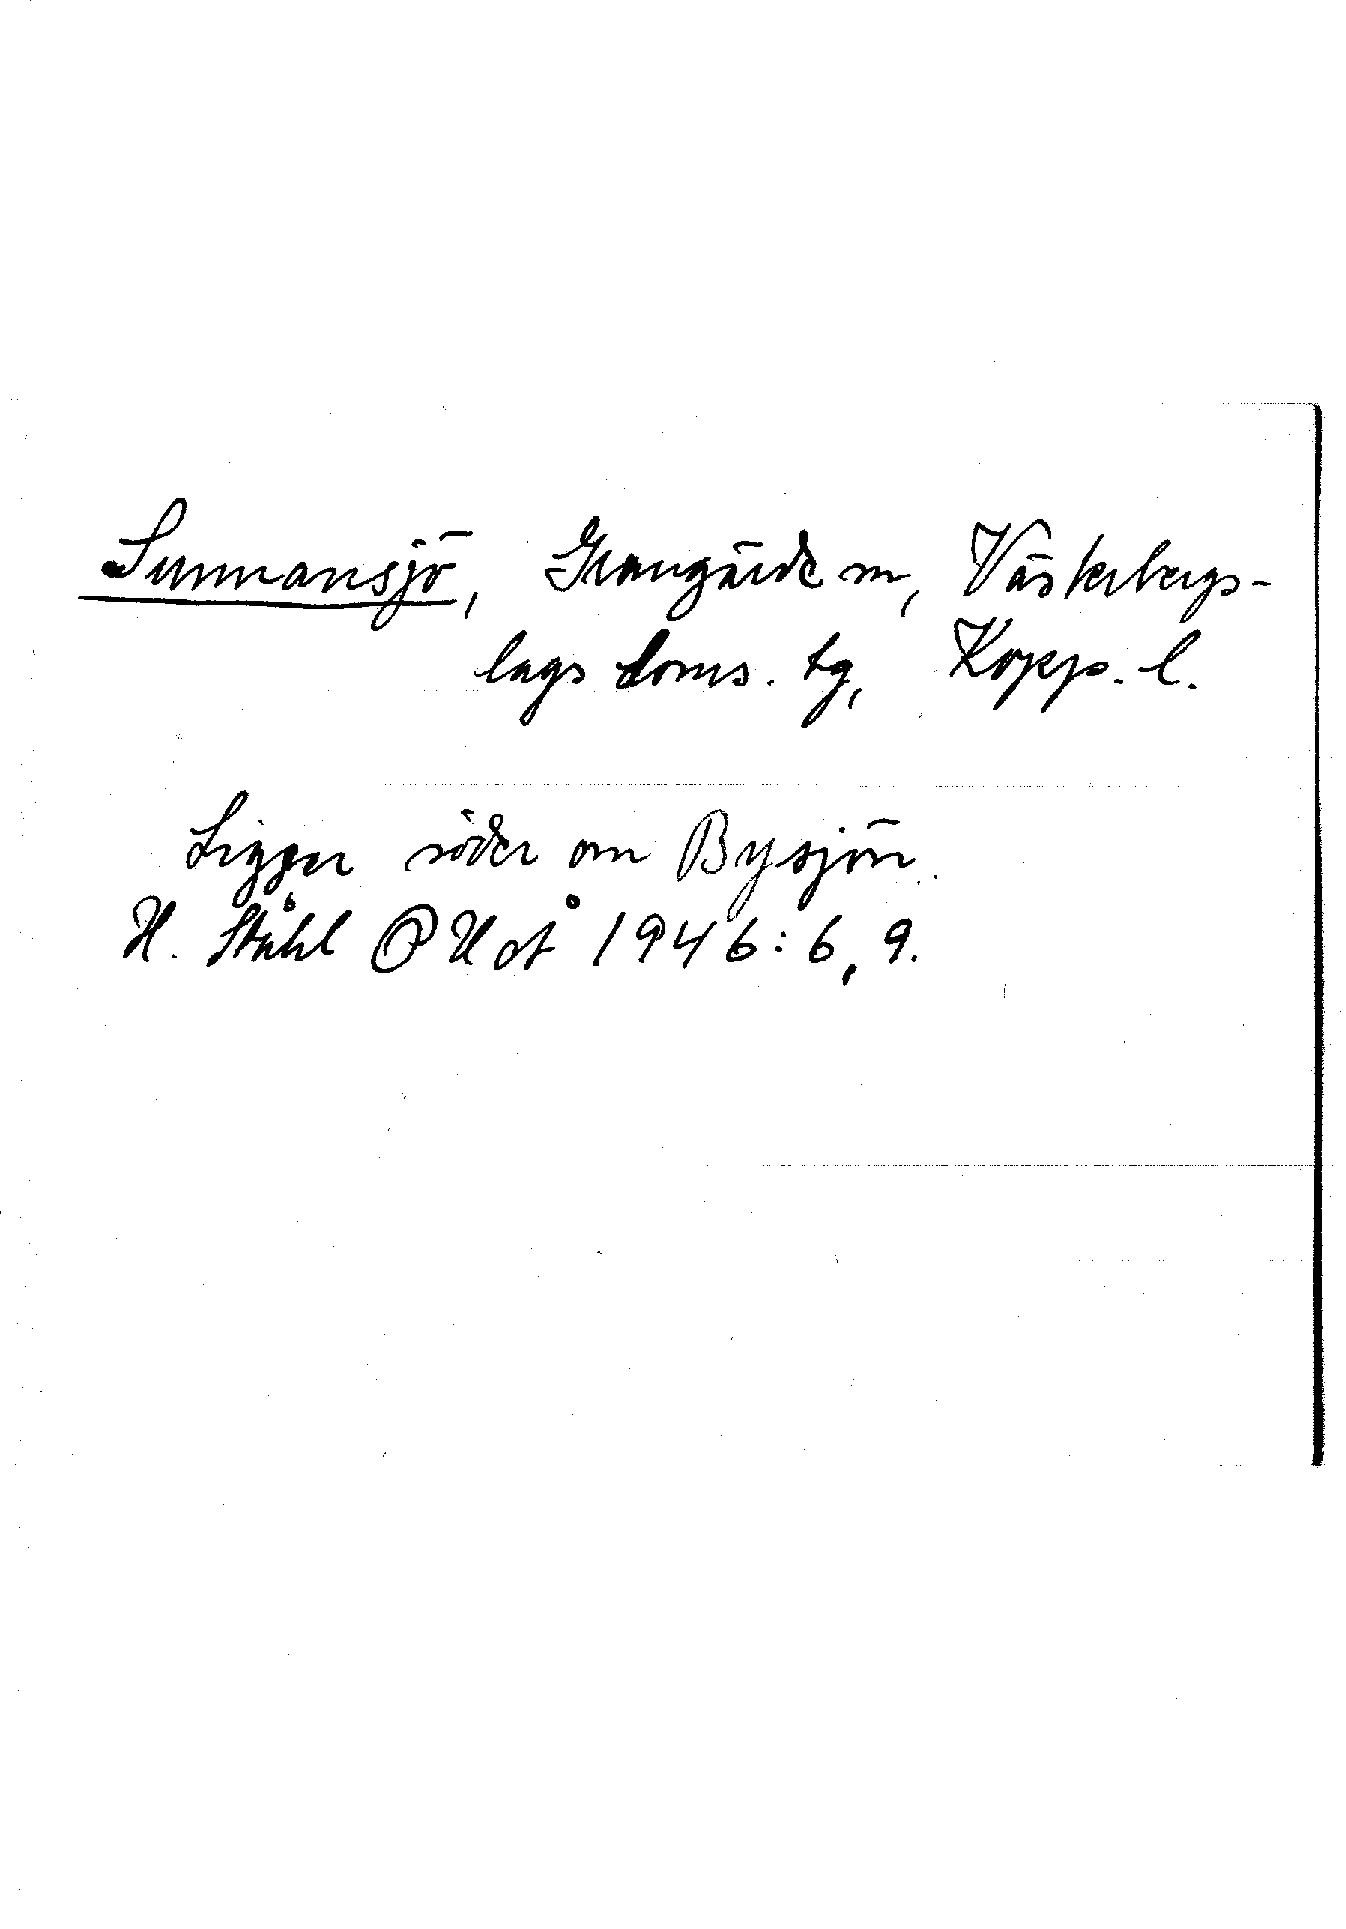 Sunnansjö, Grangärde sn, Västerbergs-
lags doms. tg, Kopp. l.
Ligger söder om Bysjön.
H. Ståhl OUoÅ 1946:6, 9.